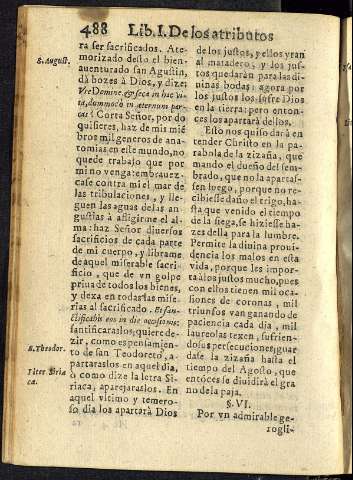 488 Lib. I. De los atributos
S. August.
ra ser sacrificados. Ate-
morizado desto el bien-
auenturado san Agustin,
dà bozes à Dios, y dize:
Vre Domine, & seca in hac vi-
ta, dummodo in æternum par-
cas: Corta Señor, por do
quisieres, haz de mis mié-
bros mil generos de ana-
tomias en este mundo, no
quede trabajo que por
mi no venga: embrauez-
case contra mi el mar de
las tribulaciones, y lle-
guen las aguas de las an-
gustias à afligirme el al-
ma: haz Señor diuersos
sacrificios de cada parte
de mi cuerpo, y librame
de aquel miserable sacri-
ficio, que de vn golpe
priua de todos los bienes,
y dexa en todas las mise-
rias al sacrificado. Et san-
ctificabis eos in die occisionis:
santificaraslos; quiere de-
zir, como es pensamien-
S. Theodor.
to de san Teodoreto, a-
partaraslos en aquel dia,
ò como dize la letra Si-
riaca, aparejaraslos. En
aquel vltimo y temero-
so dia los apartarà Dios
de los justos, y ellos yran
al matadero, y los jus-
tos quedaràn para las di-
uinas bodas: agora por
los justos los sufre Dios
en la tierra: pero enton-
ces los apartarà dellos.
Esto nos quiso darà en
tender Christo en la pa-
rabola de la zizaña, que
mando el dueño del sem-
brado, que no la apartas-
sen luego, porque no re-
cibiesse daño el trigo, has-
ta que venido el tiempo
de la siega, se hiziesse ha-
zes della para la lumbre.
Permite la diuina proui-
dencia los malos en esta
vida, porque les impor-
ta à los justos mucho, pues
con ellos tienen mil oca-
siones de coronas, mil
triunfos van ganando de
paciencia cada dia, mil
laureolas texen, sufrien-
do sus persecuciones; guar
dase la zizaña hasta el
tiempo del Agosto, que
entóces se diuidirà el gra
no de la paja.
§. VI.
Por vn admirable ge-
rogli-